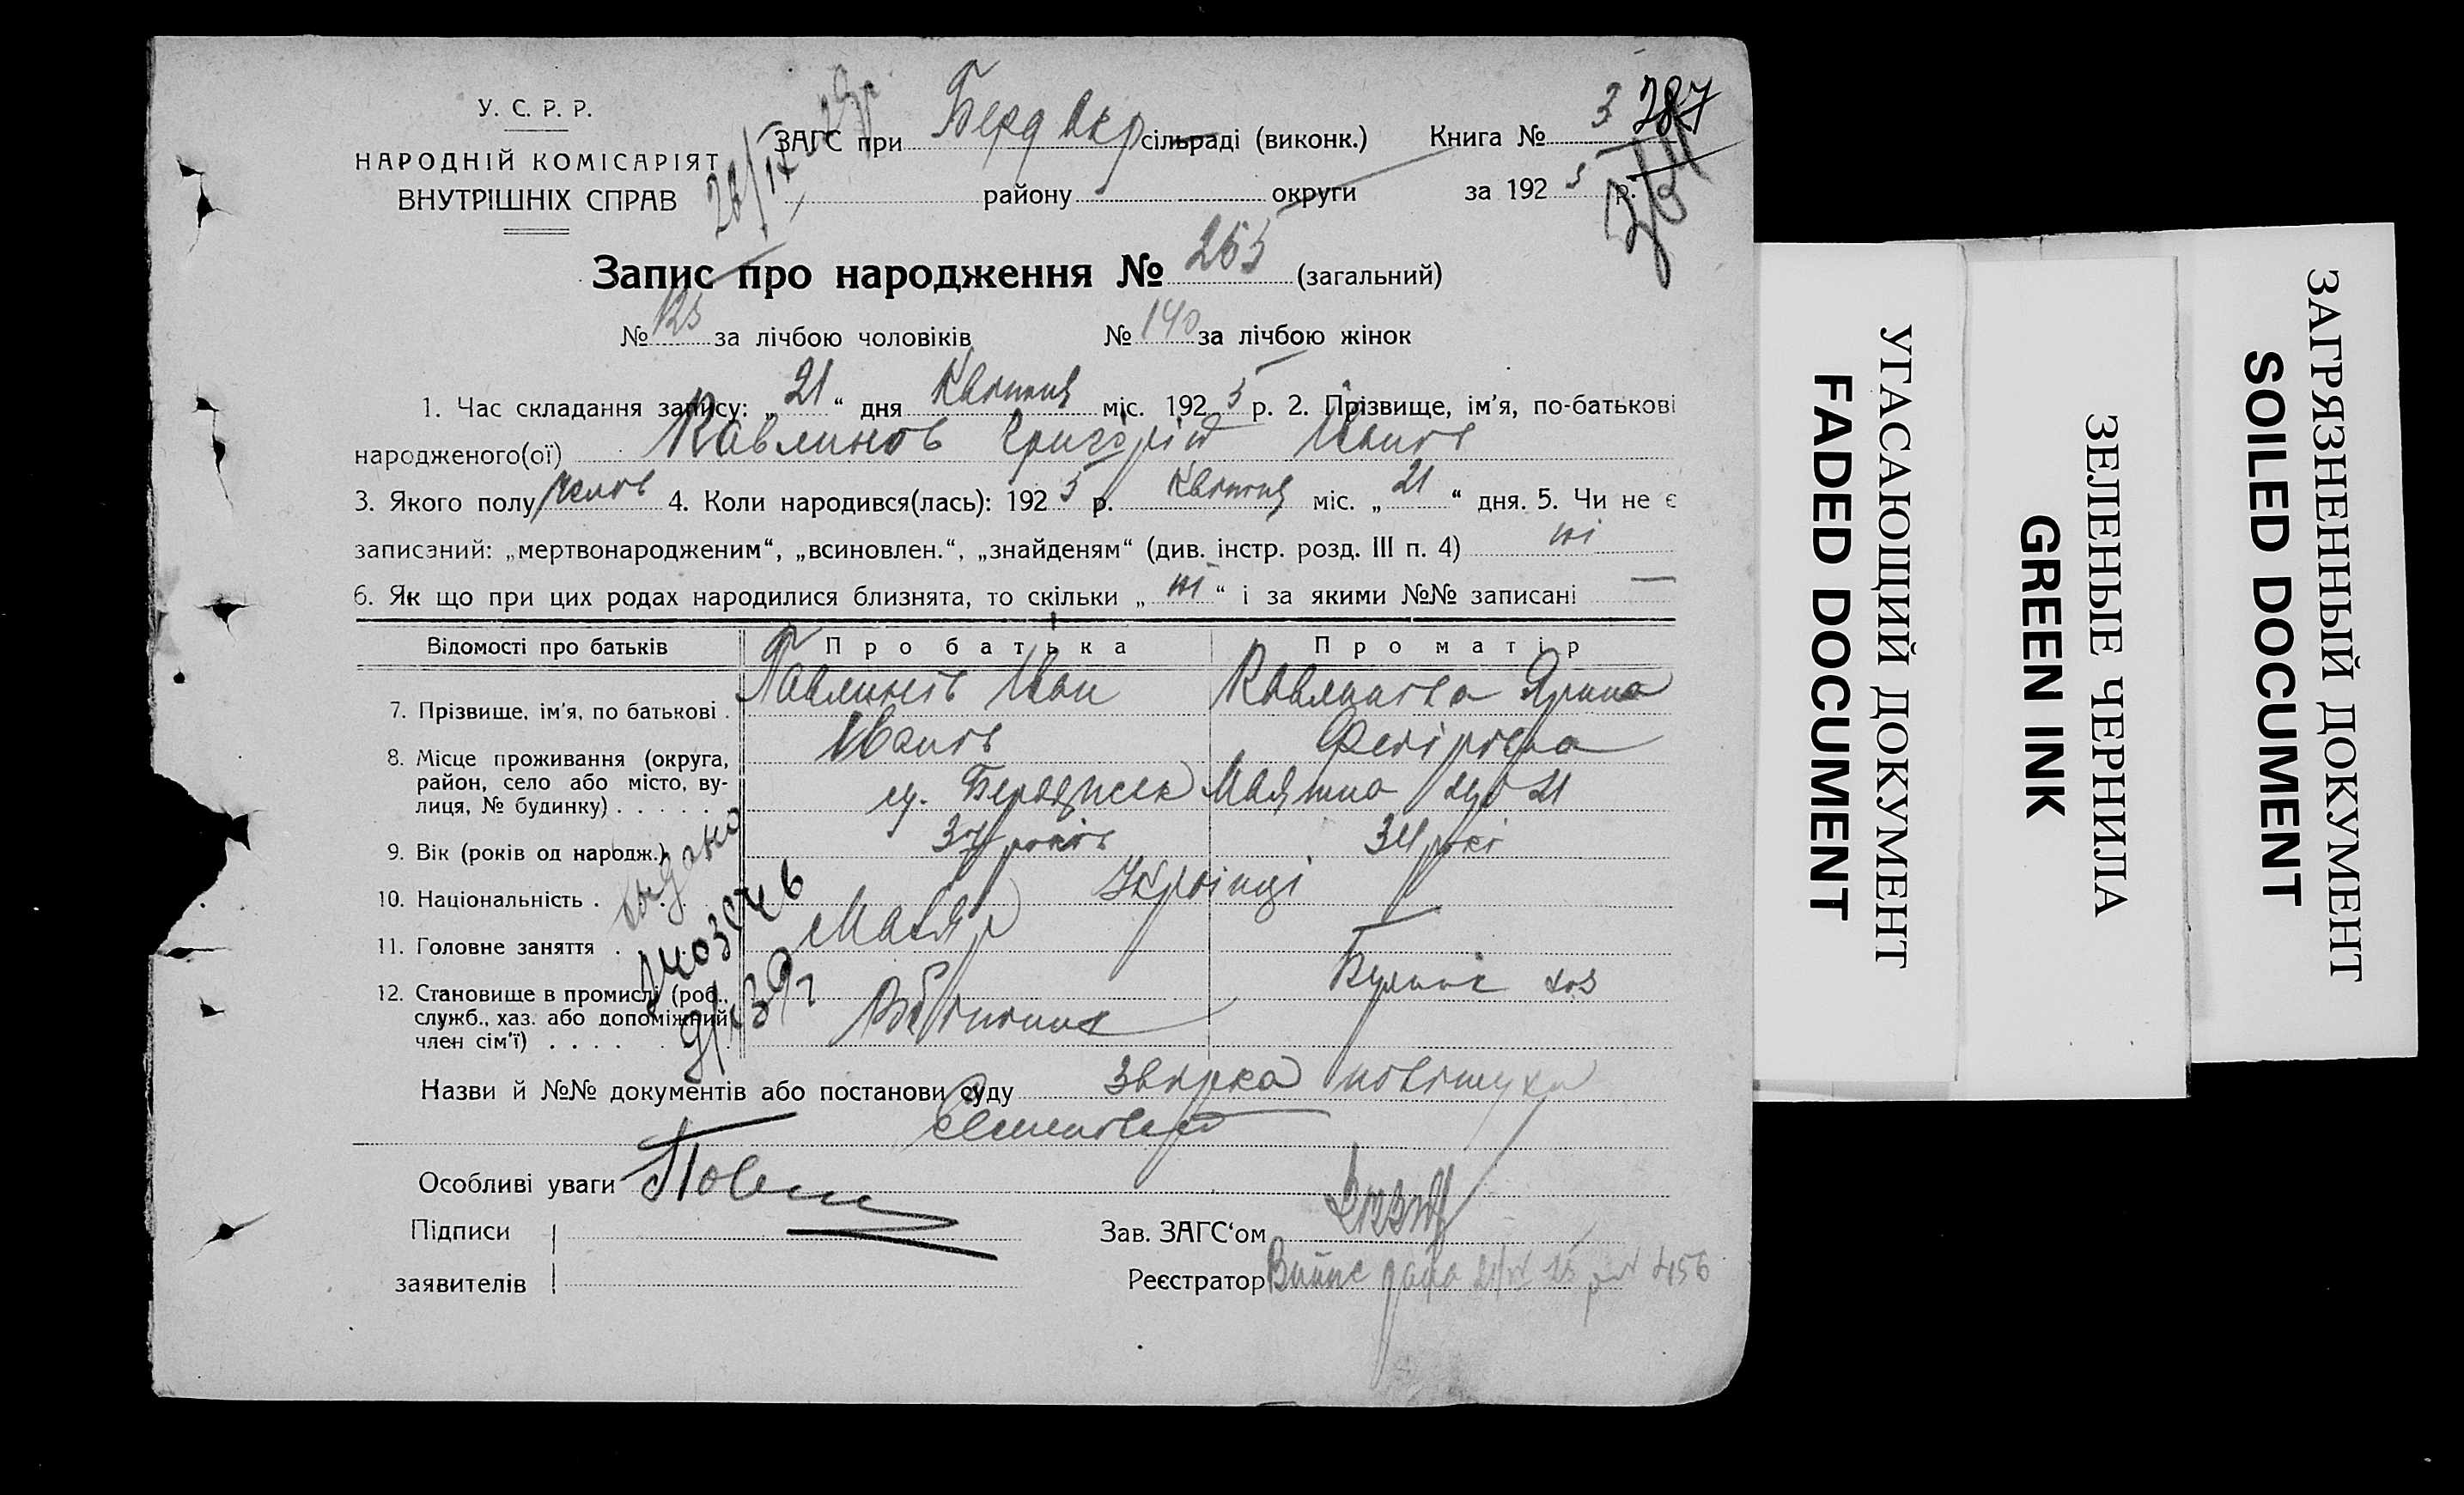 У. С. Р. Р.
НАРОДНІЙ КОМІСАРІЯТ
ВНУТРІШНІХ СПРАВ
ЗАГС при Берд Окр сільраді (виконк.) Книга № 3 287
району округи за 1925 р.
Запис про народження № 265 (загальний)
№ 125 за лічбою чоловіків № 140 за лічбою жінок
1. Час складання запису: „21“ дня Квітня міс. 1925 р. 2. Прізвище, ім’я, по-батькові
народженого(ої) Павлинов Григорій Іванов
3. Якого полу 4. Коли народився(лась): 1925 р. Квітня міс. „21“ дня. 5. Чи не є
записаний: „мертвонародженим“, „всиновлен.“, „знайденям“ (див. інстр. розд. III п. 4) ні
6. Як що при цих родах народилися близнята, то скільки „ні“ і за якими №№ записані —
Відомості про батьків Про батька Про матір
7. Прізвище, ім’я, по батькові . Павлинов Іван Павлинова Ярина
Іванов Федіровна
8. Місце проживання (округа,
район, село або місто, ву-
лиця, № будинку) . . . . . м. Бердичев 21
9. Вік (років од народж.) 37 років 34 рокі
10. Національність . Українці
11. Головне заняття . Маляр
12. Становище в промислі (роб.,
служб., хаз. або допоміжний
член сім’ї) . . . .
видано
9/I 39 г
Назви й №№ документів або постанови суду повитуха
Особливі уваги
Підписи
заявителів
Зав. ЗАГС‘ом
Реєстратор Випис дана 21/IV 25 р № 456
УГАСАЮЩИЙ ДОКУМЕНТ
FADED DOCUMENT
ЗЕЛЕНЫЕ ЧЕРНИЛА
GREEN INK
ЗАГРЯЗНЕННЫЙ ДОКУМЕНТ
SOILED DOCUMENT